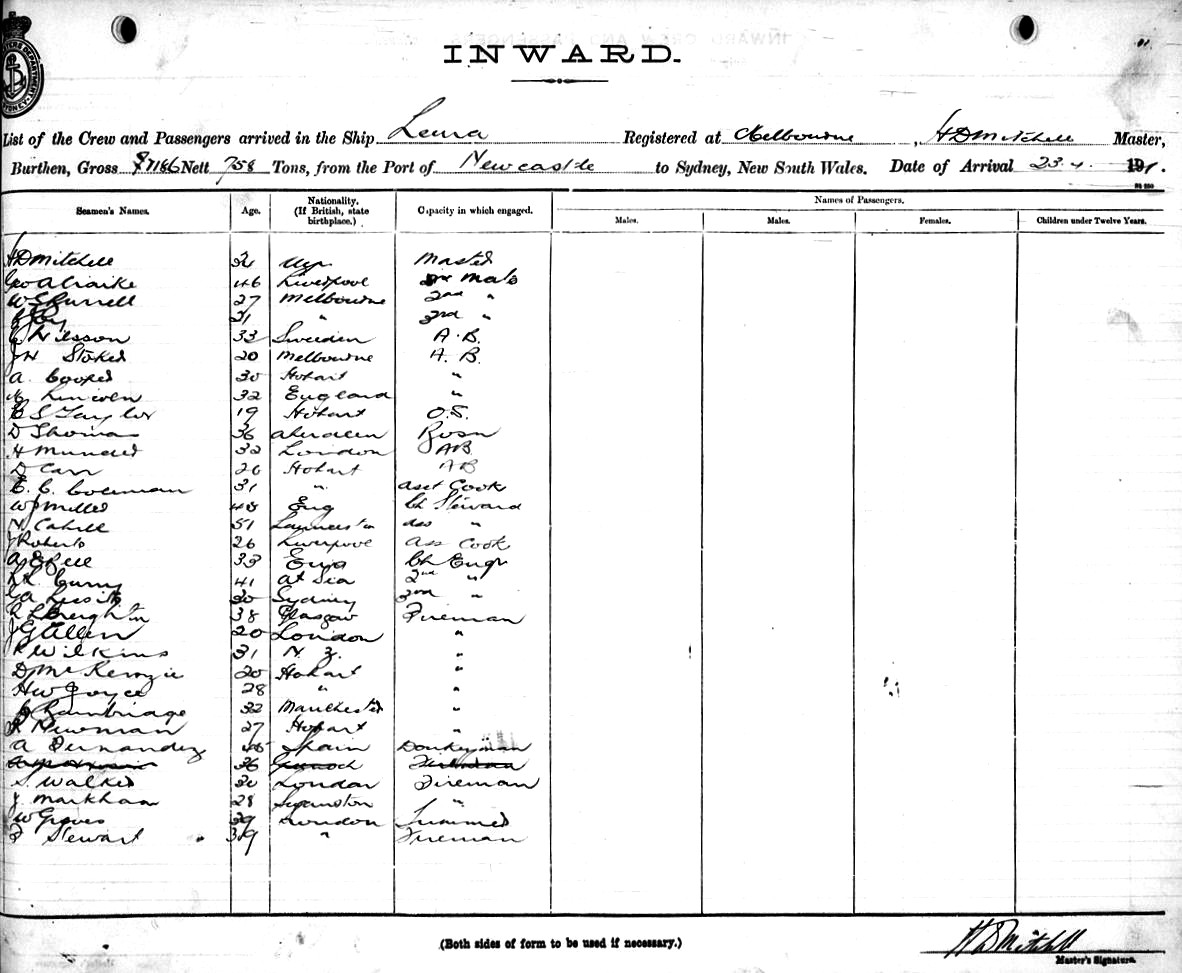 INWARD.
List of the Crew and Passengers arrived in the Ship Registered at Melbourne, H D Mitchell Master,
Burthen, Gross Nett 758 Tons, from the Port of Newcastle to Sydney, New South Wales. Date of Arrival 23.4. 191
Seamen's Names. Age. Nationality. (If British, state birthplace.) Capacity in which engaged. Names of Passengers.
Males. Males. Females. Children under Twelve Years.
H D Mitchell Master
Geo A 46 Liverpool Mate
W S 27 Melbourne 2nd "
31 " 3rd "
Nilsson 33 Sweden A.B.
J H Stokes 20 Melbourne A.B.
A. Cooper 30 Hobart "
Lincoln 32 England "
S Taylor 19 Hobart O.S.
D Thomas 36 Aberdeen Bosn
H Munder 32 London AB
D Carr 26 Hobart AB
E. C. Coleman 31 " Asst Cook
W J Miller 48 Eng Ch Steward
N Cahill 51 "
J Roberts 26 Liverpool Ass Cook
33 Eng Ch Engr
Curry 41 At Sea 2nd "
G A 30 Sydney 3rd "
38 Glasgow Fireman
J G Allen 20 London "
Wilkins 31 N. Z. "
D McKenzie 20 Hobart "
H W Joyce 28 " "
Bambridge 32 Manchester "
Newman 27 Hobart "
A Fernandez Spain Donkeyman
36
S. Walker 30 London Fireman
J. Markham 28 "
J W Groves 39 London Trimmer
Stewart 39 " Fireman
(Both sides of form to be used if necessary.)
H D Mitchell
Master's Signature.